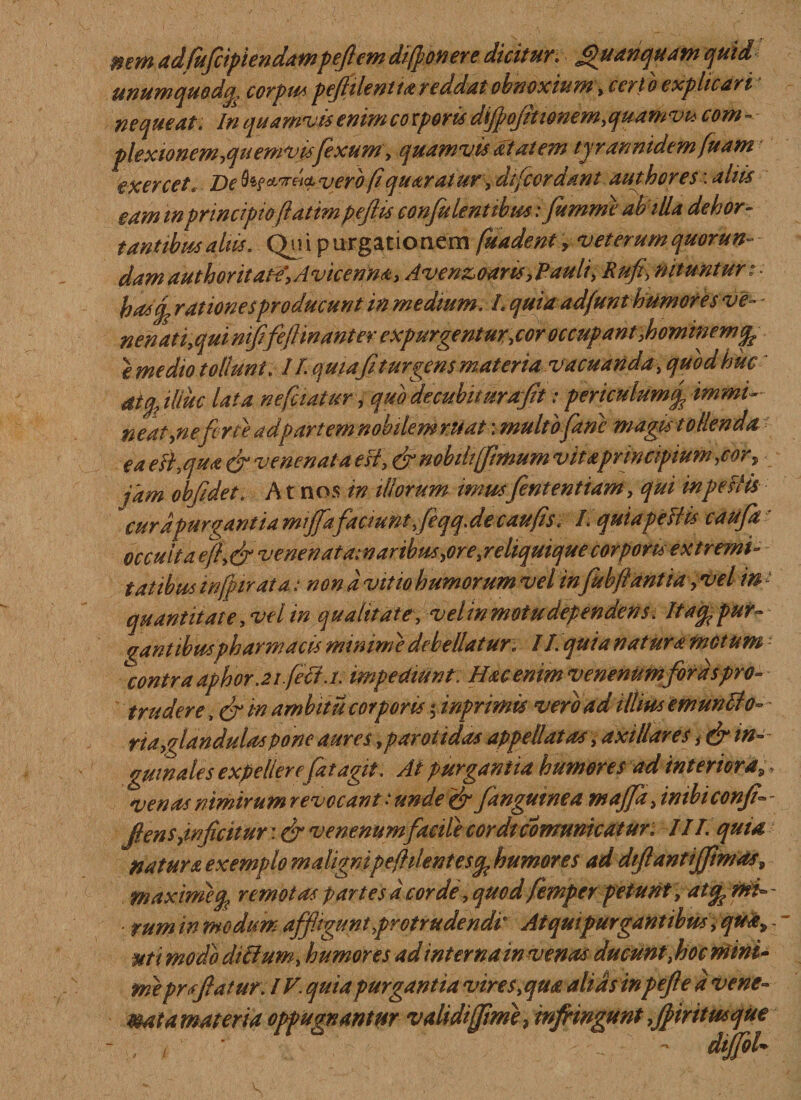 nem ad suscipiendam pestem disponere dicitur. Quanquam quid
unumquodq; corpus pestilentiæ reddat obnoxium, certò explicari
nequeat. In quamvis enim corporis dispositionem, quamvis com-
plexionem, quemvis sexum, quamvis ætatem tyrannidem suam
exercet. De θεραπείᾳ verò si quæratur, discordant authores: aliis
eam in principio statim pestis consulentibus: summè ab illa dehor-
tantibus aliis. Qui purgationem suadent, veterum quorun-
dam authoritate, Avicennæ, Avenzoaris, Pauli, Rufi, nituntur:
hasq; rationes producunt in medium. I. quia adsunt humores ve-
nenati, qui nisi festinanter expurgentur, cor occupant, hominemq;
è medio tollunt. II. quia si turgens materia vacuanda, quòd huc
atq; illuc lata nesciatur, quò decubitura sit: periculumq; immi-
neat, ne fortè ad partem nobilem ruat: multò sanè magis tollenda
ea est, quæ & venenata est, & nobilissimum vitæ principium, cor,
jam obsidet. At nos in illorum imus sententiam, qui in pestis
curâ purgantia missa faciunt, seqq. de causis. I. quia pestis causa
occulta est, & venenata: naribus, ore, reliquique corporis extremi-
tatibus inspirata: non à vitio humorum vel in substantia, vel in
quantitate, vel in qualitate, vel in motu dependens. Itaq; pur-
gantibus pharmacis minimè debellatur. II. quia naturæ motum
contra aphor. 21. sect. 1. impediunt. Hæc enim venenum foràs pro-
trudere, & in ambitu corporis; inprimis verò ad illius emuncto-
ria, glandulas pone aures, parotidas appellatas, axillares, & in-
guinales expellere satagit. At purgantia humores ad interiora,
venas nimirum revocant: unde & sanguinea massa, inibi consi-
stens, inficitur: & venenum facilè cordi communicatur. III. quia
naturæ exemplo maligni pestilentesq; humores ad distantissimas,
maximéq; remotas partes à corde, quod semper petunt, atq; mi-
rum in modum affligunt, protrudendi. Atqui purgantibus, quæ,
uti modò dictum, humores ad interna in venas ducunt, hoc mini-
mè præstatur. IV. quia purgantia vires, quæ aliàs in peste à vene-
nata materia oppugnantur validissimè, infringunt, spiritusque
dissol-